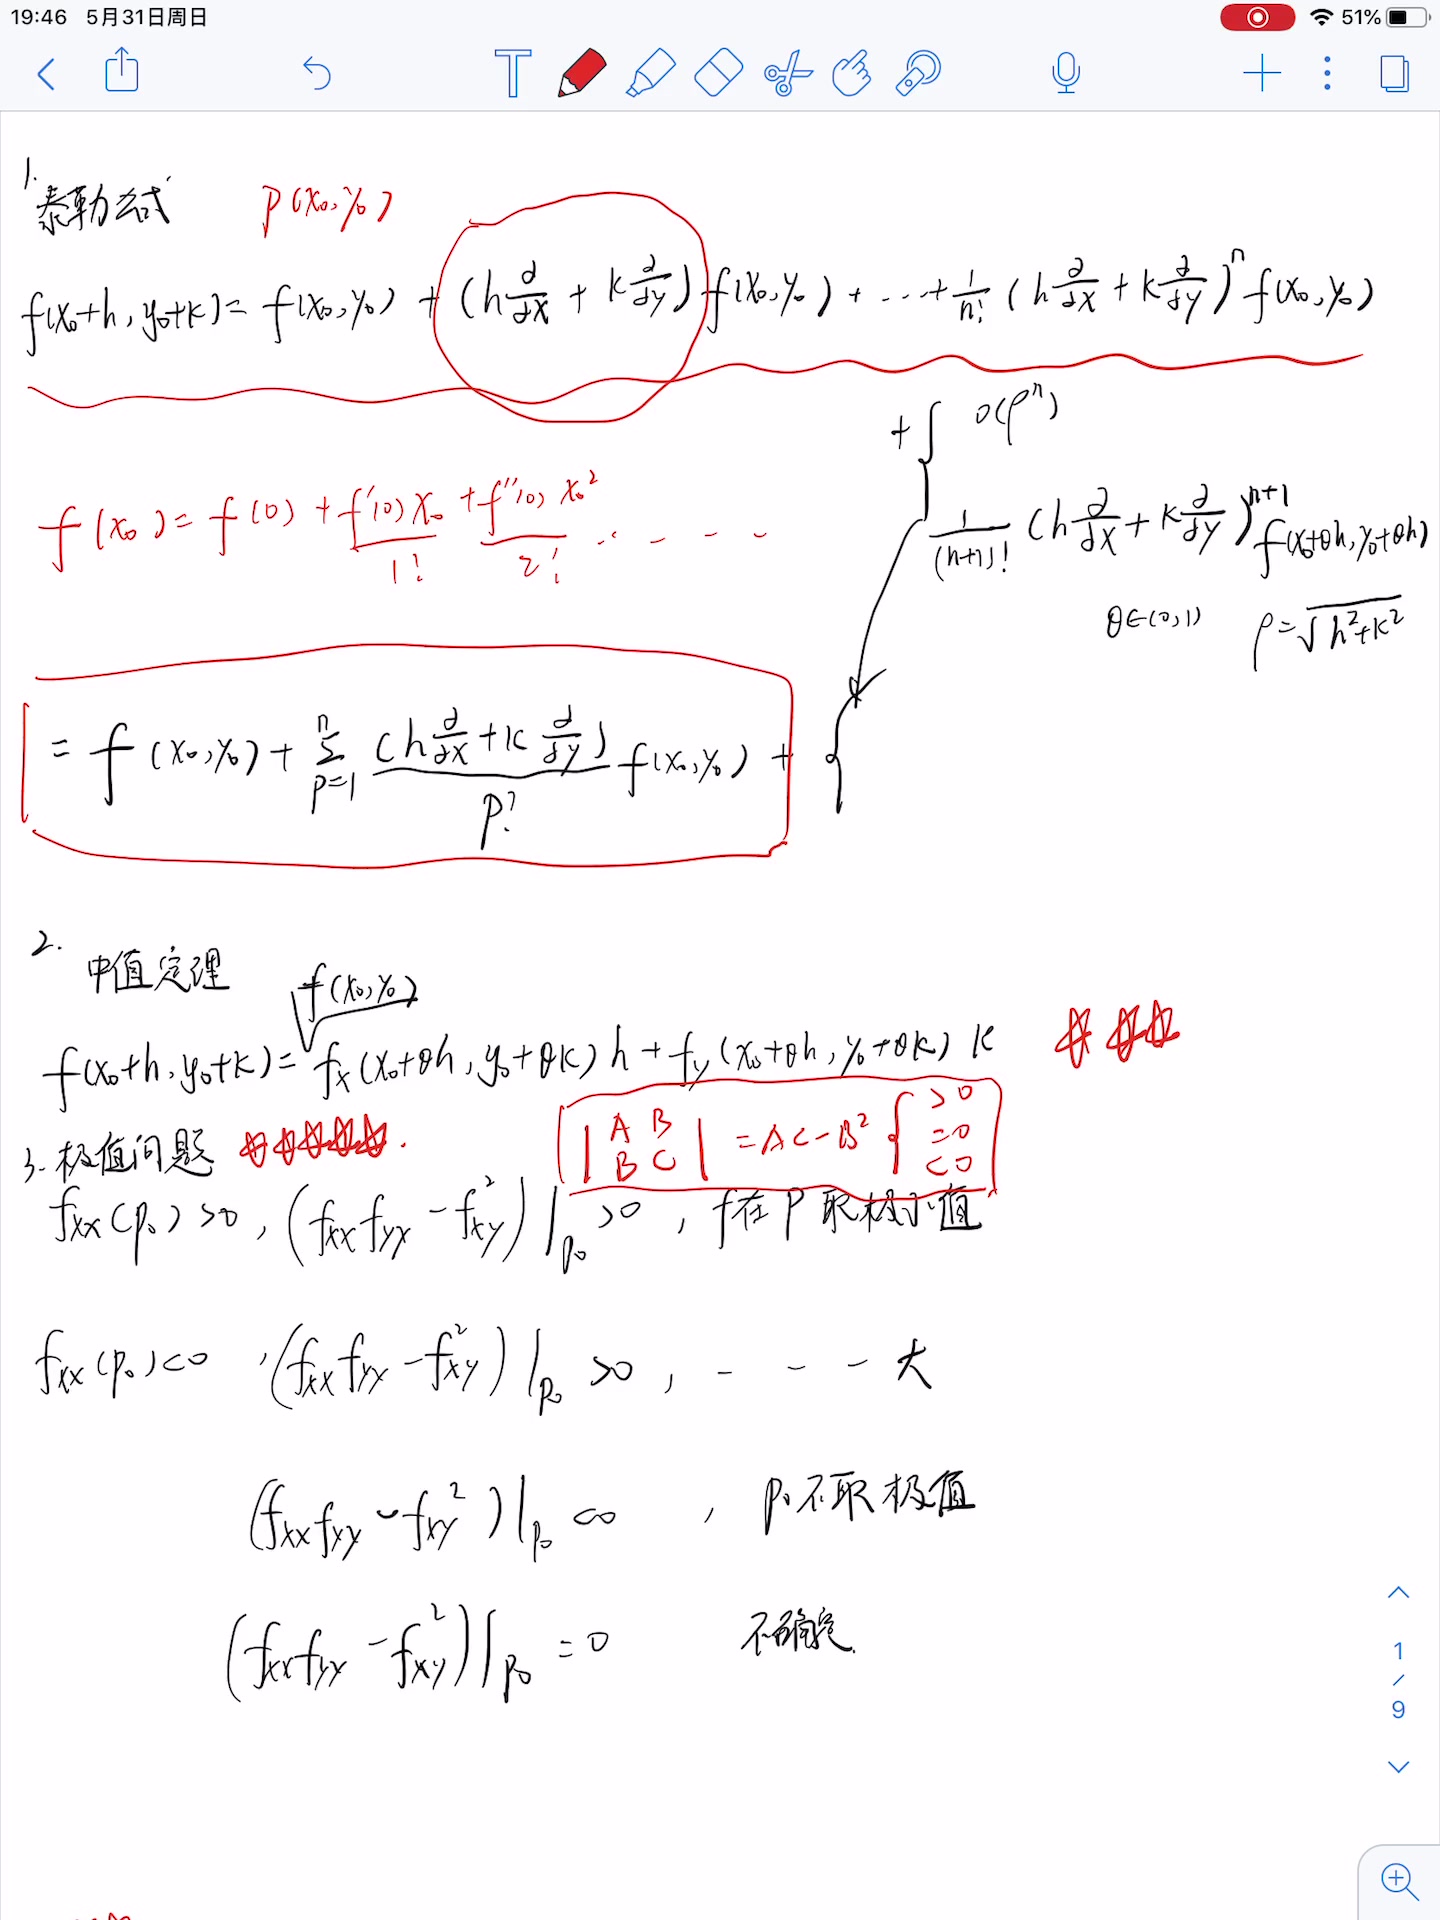 19:46 5月31日周日 51%
1.
泰勒公式 P(x₀,y₀)
f(x₀+h, y₀+k) = f(x₀,y₀) + (h ∂/∂x + k ∂/∂y) f(x₀,y₀) + ... + 1/n! (h ∂/∂x + k ∂/∂y)ⁿ f(x₀,y₀)
+ { o(ρⁿ)
1/(n+1)! (h ∂/∂x + k ∂/∂y)ⁿ⁺¹ f(x₀+θh, y₀+θh)
θ∈(0,1) ρ=√(h²+k²)
f(x₀) = f(0) + f'(0)x₀/1! + f''(0)x₀²/2! ....
= f(x₀,y₀) + Σ_{p=1}^{n} (h ∂/∂x + k ∂/∂y)/p! f(x₀,y₀) + {
2.
中值定理
f(x₀,y₀)
f(x₀+h, y₀+k) = fx(x₀+θh, y₀+θk) h + fy(x₀+θh, y₀+θk) k
|A B; B C| = AC-B² { >0 =0 <0
3. 极值问题
fxx(p₀)>0, (fxx fyy - fxy²)|p₀ >0, f在P取极小值
fxx(p₀)<0, (fxx fyy - fxy²)|p₀ >0, - - - 大
(fxx fyy - fxy²)|p₀ <0, p₀不取极值
(fxx fyy - fxy²)|p₀ =0 不确定.
1
/
9